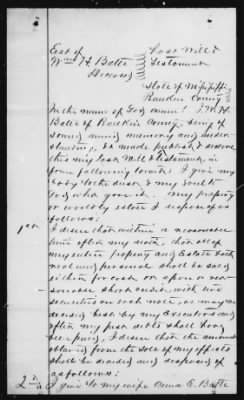 Est of Last Will &
Wm H. Batte Testament
Deceased
State of Mississippi
Rankin County
In the name of God amen! I, W. H.
Batte of Rankin County, being of
sound mind, memory and under
standing, do make publish & declare
this my last Will & Testament, in
following words! I give my
body to the dust & my spirit to
God who gave it. My property
or worldly estate I dispose of as
follows:
1st I desire that within a reasonable
time after my death, that all of
my entire property and Estate both
real and personal shall be sold
either for cash or upon a rea-
sonable short credit, with two
securities on each note, as may be
deemed best by my Executors and
after my just debts shall have
been paid, I desire that the amount
obtained from the sale of my effects
shall be divided and disposed of
as follows:
2nd I give to my wife E. Batte